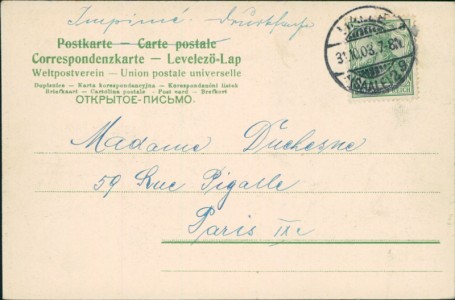 Imprimé. Drucksache
Postkarte — Carte postale
Correspondenzkarte — Levelező-Lap
Weltpostverein — Union postale universelle
Dopisnice — Karta korespondencyjna — Korespondenční lístek
Briefkaart — Cartolina postale — Post card — Brefkort
ОТКРЫТОЕ-ПИСЬМО.
HALLE
(SAALE)
Madame Duchesne
59 Rue Pigalle
Paris IXe